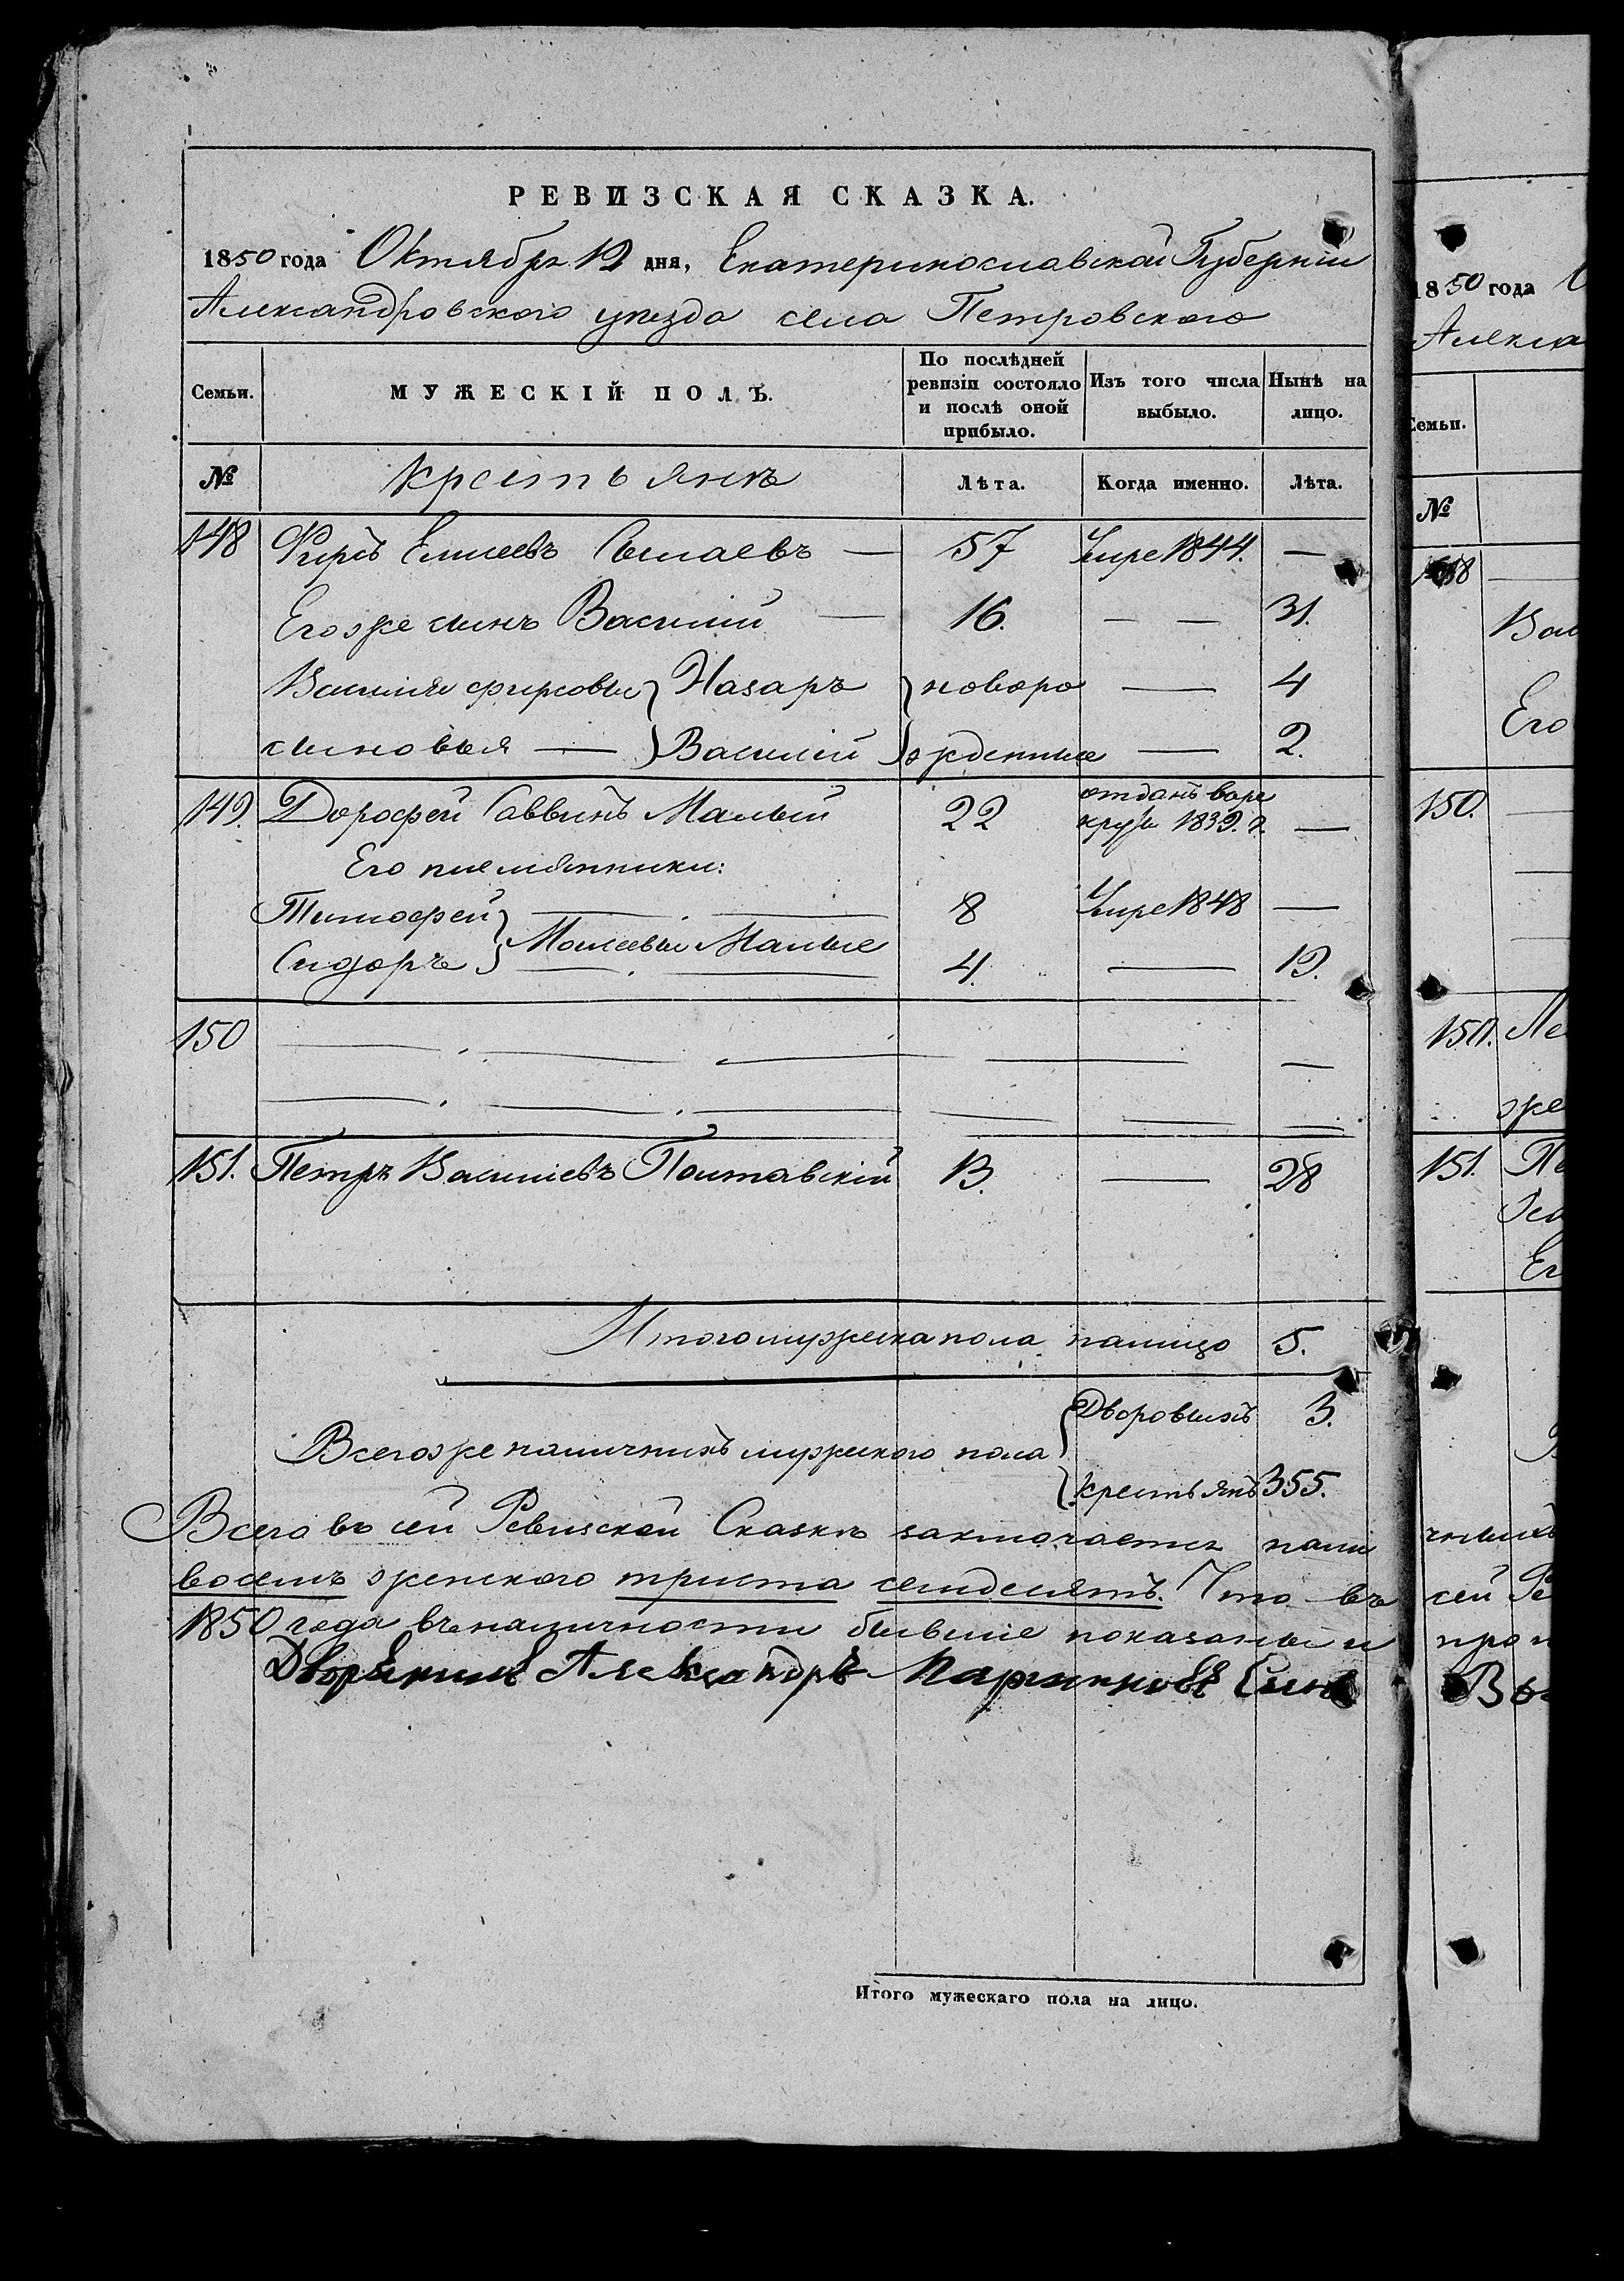 РЕВИЗСКАЯ СКАЗКА.
1850 года Октября 12 дня, Екатеринославской Губерніи
Александровского уезда села Петровского
Семьи. МУЖЕСКІЙ ПОЛЪ. По послѣдней ревизіи состояло и послѣ оной прибыло. Изъ того числа выбыло. Нынѣ на лицо.
№ Крестьянъ Лѣта. Когда именно. Лѣта.
148 Фирсъ Елисеевъ — 57 Умре 1844. —
Его же сынъ Василий — 16. — — 31.
Василия фирсовы Назаръ новоро — 4
сыновья — Василій жденные — 2.
149. Дорофей Саввинъ Малый 22 отданъ в рекруты 1839. г. —
Его племянники:
Тимофей — 8 Умре 1848 —
Моисеевы Малые
Сидоръ — 4. — 19.
150 — — — — — —
— — — — — —
151. Петръ Васильевъ Полтавскій 13. — 28
Итого мужеска пола налицо 5.
Дворовыхъ 3.
Всего же наличныхъ мужеского пола
крестьянъ 355.
Всего въ сей Ревизской Сказкѣ заключается нали
восемъ женского триста семдесятъ. Что въ
1850 года въ наличности бывшие показаны и
Дворянинъ Александръ Сынъ
Итого мужескаго пола на лицо.
1850 года
Алекса
Семьи.
№
148
Вас
Его
150.
150. Пе
же
151. Пе
Ег
чныхъ
сей Ре
про